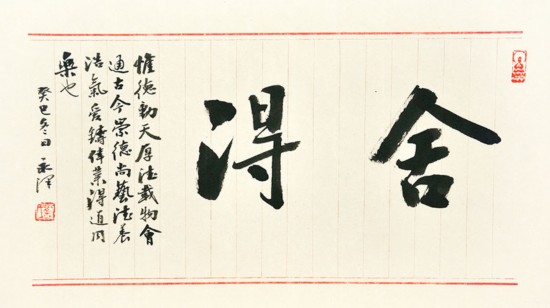 舍得
惟德動天厚德載物會
通古今崇德尚藝德養
浩氣愛鑄偉業得道同
樂也
癸巳冬日